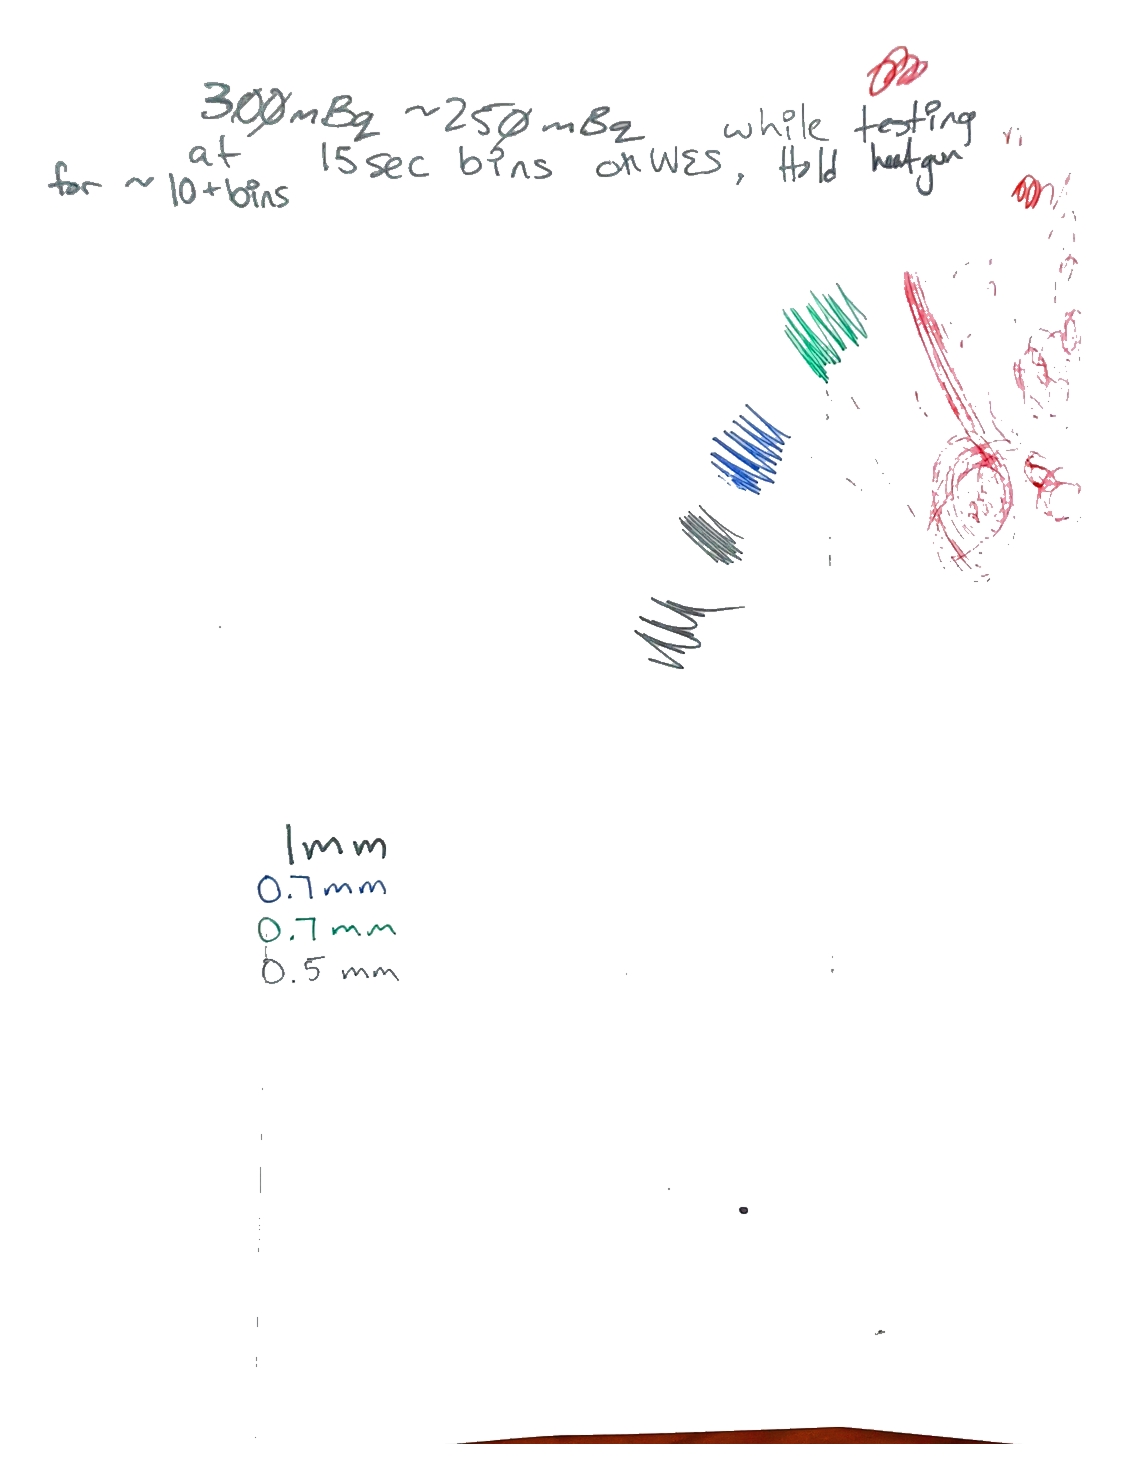 300mBq ~250mBq while testing
at 15sec bins on WES, Hold heatgun
for ~ 10+bins
1mm
0.7mm
0.7mm
0.5 mm